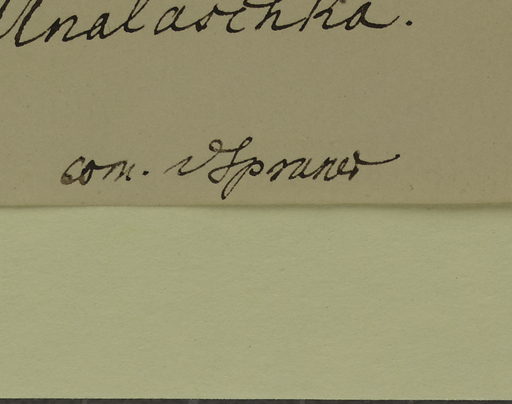 Unalaschka.
com. v Spruner